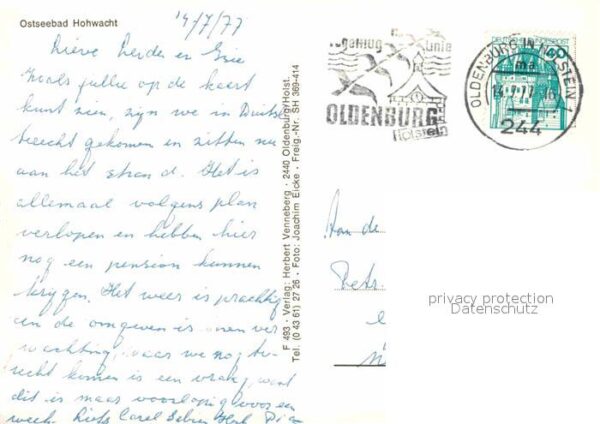 Ostseebad Hohwacht
14/7/77
Lieve Leiden en Gré
Zoals jullie op de kaart
kunt zien, zijn we in Duits
terecht gekomen en zitten nu
aan het strand. Het is
allemaal volgens plan
verlopen en hebben hier
nog een pension kunnen
krijgen. Het weer is prachtig
en de omgeven is oven ver
wachting, waar we nog te-
recht komen is een vraag, want
dit is maar voorlopig voor een
week. Liefs Carel
F 493 · Verlag: Herbert Venneberg · 2440 Oldenburg/Holst.
Tel. (0 43 61) 27 26 · Foto: Joachim Eicke · Freig.-Nr. SH 369-414
Vogelflug Linie
OLDENBURG
Holstein
OLDENBURG IN HOLSTEIN
ma
14.7.77
244
DEUTSCHE BUNDESPOST
Aan de
Petr.
privacy protection
Datenschutz